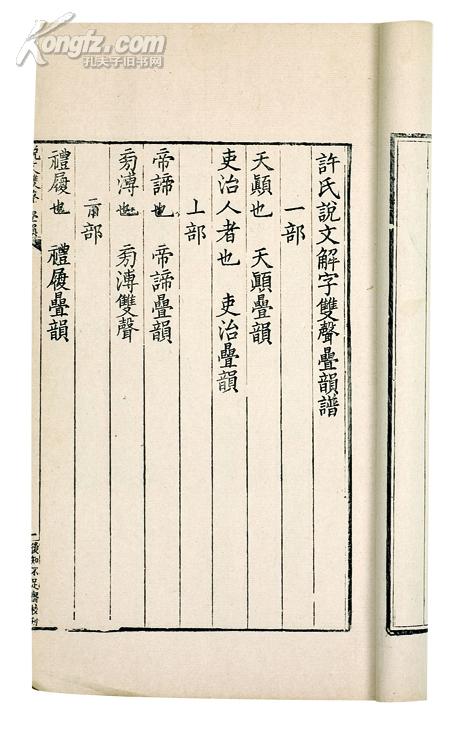 Kongfz.com
孔夫子旧书网
許氏說文解字雙聲疊韻譜
一部
天顚也　天顚疊韻
吏治人者也　吏治疊韻
丄部
帝諦也　帝諦疊韻
旁溥也　旁溥雙聲
示部
禮履也　禮履疊韻
一後知不足齋校刊